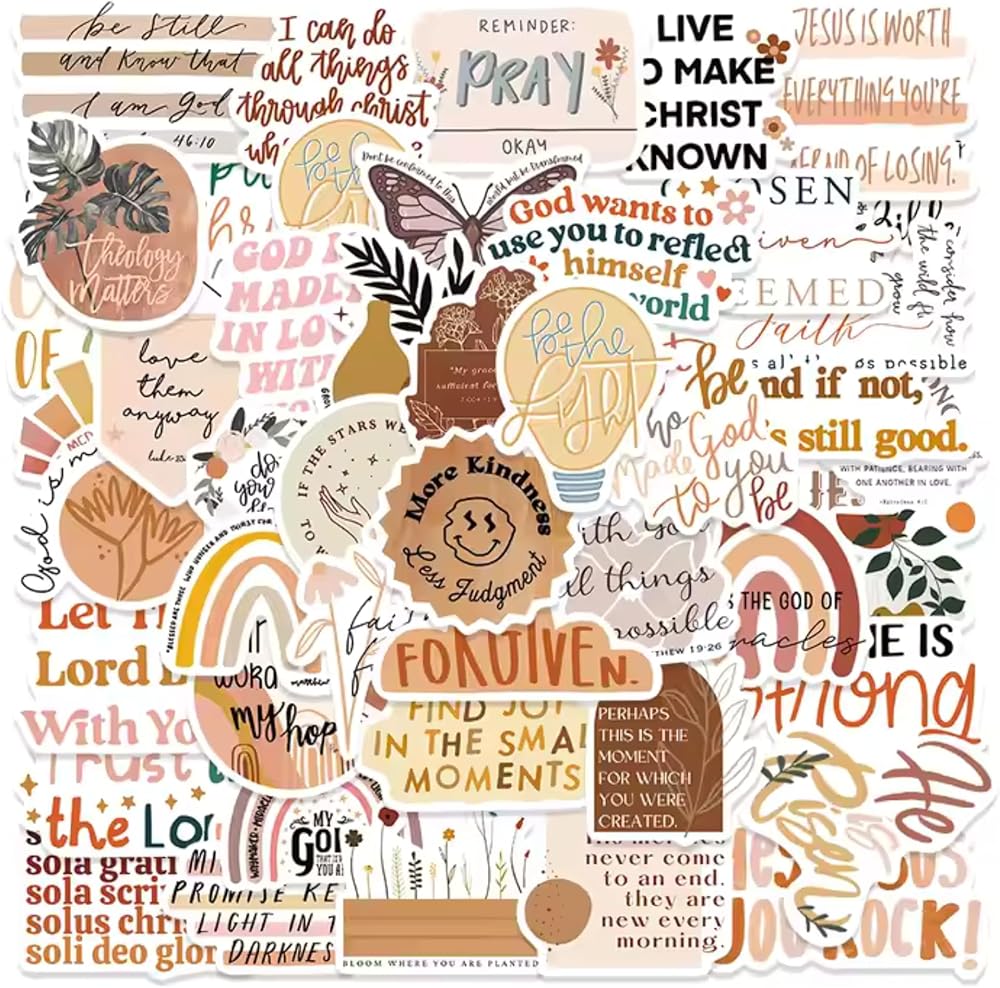 be still
and know that
I am God
46:10
I can do
all things
through christ
REMINDER:
PRAY
OKAY
LIVE
O MAKE
CHRIST
KNOWN
JESUS IS WORTH
EVERYTHING YOU'RE
AFRAID OF LOSING.
theology
matters
be the
Don't be conformed to this
world but be transformed
God wants to
use you to reflect
himself
world
OSEN
iven
EEMED
faith
consider how
the wild fl
grow
GOD I
MADL
IN LO
WIT
OF
love
them
anyway
luke 23:
"My grace
sufficient for
be the
light
be
who
made
to
you
be
God's
nd if not,
s still good.
WITH PATIENCE, BEARING WITH
ONE ANOTHER IN LOVE.
God is
do
you
IF THE STARS WE
More Kindness
Less Judgment
ith God
ll things
possible
THEW 19:26
THE GOD OF
racles
HE IS
strong
"BLESSED ARE THOSE WHO HUNGER AND THIRST FOR
Let
Lord
With Yo
Trust
the Lor
FORGIVEN.
my hop
FIND JOY
IN THE SMAL
MOMENTS
PERHAPS
THIS IS THE
MOMENT
FOR WHICH
YOU WERE
CREATED.
He
is
Risen
sola grati
sola scri
solus chri
soli deo glor
MI
PROMISE KE
LIGHT IN T
DARKNES
WAYMAKER • MIRACLE
MY
GO
BLOOM WHERE YOU ARE PLANTED
never come
to an end.
they are
new every
morning.
Jesus
YOU ROCK!